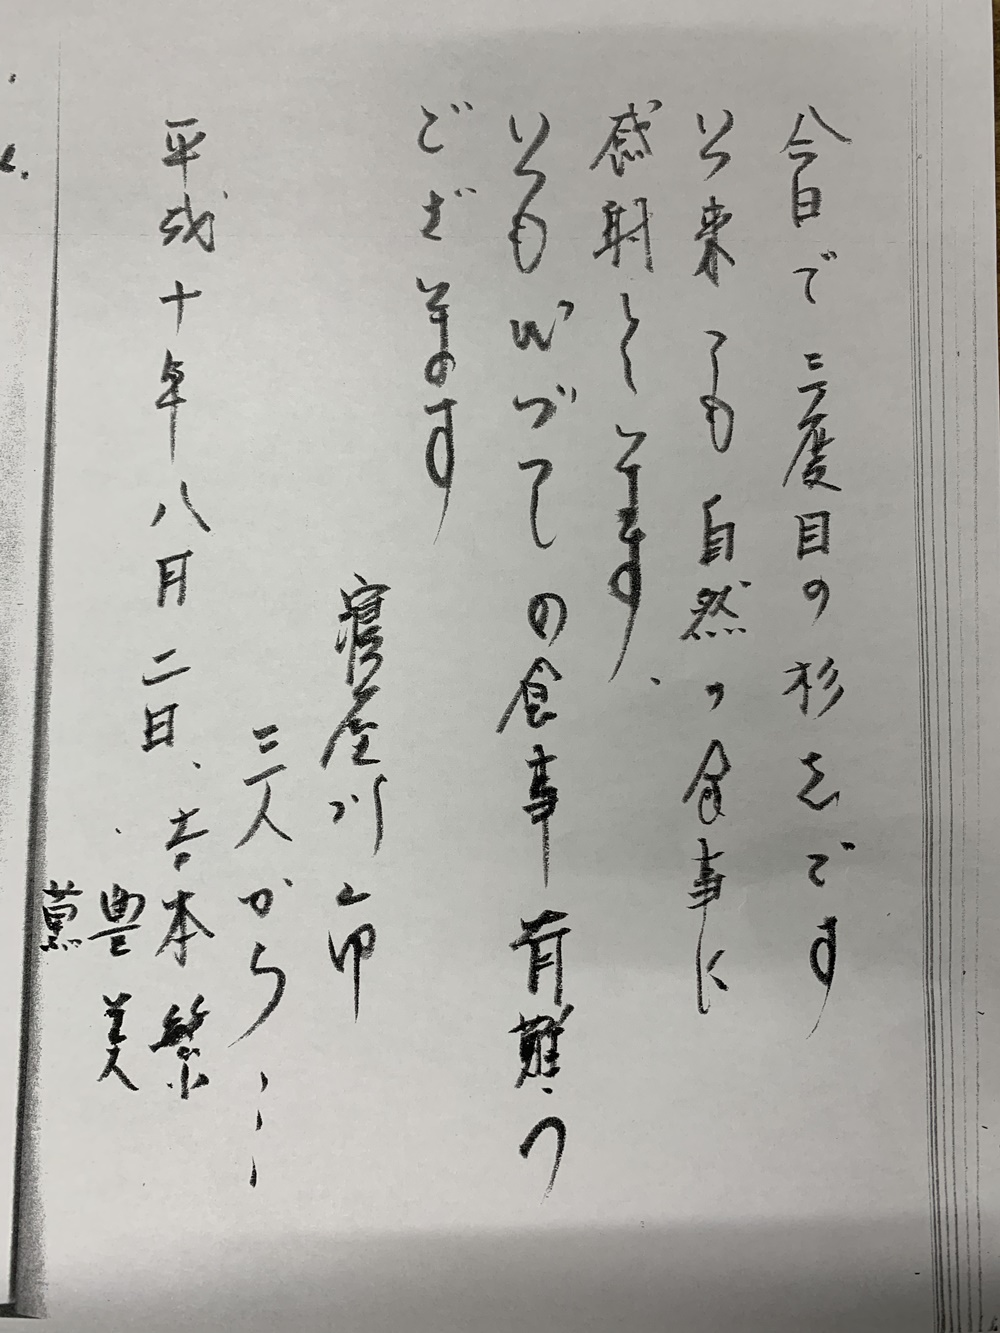 今日で三度目の杉志です
いつ来ても自然の食事に
感射しています。
いつも心づくしの食事有難う
ございます
寝屋川市
三人から…
平成十年八月二日、吉本繁
豊美
薫